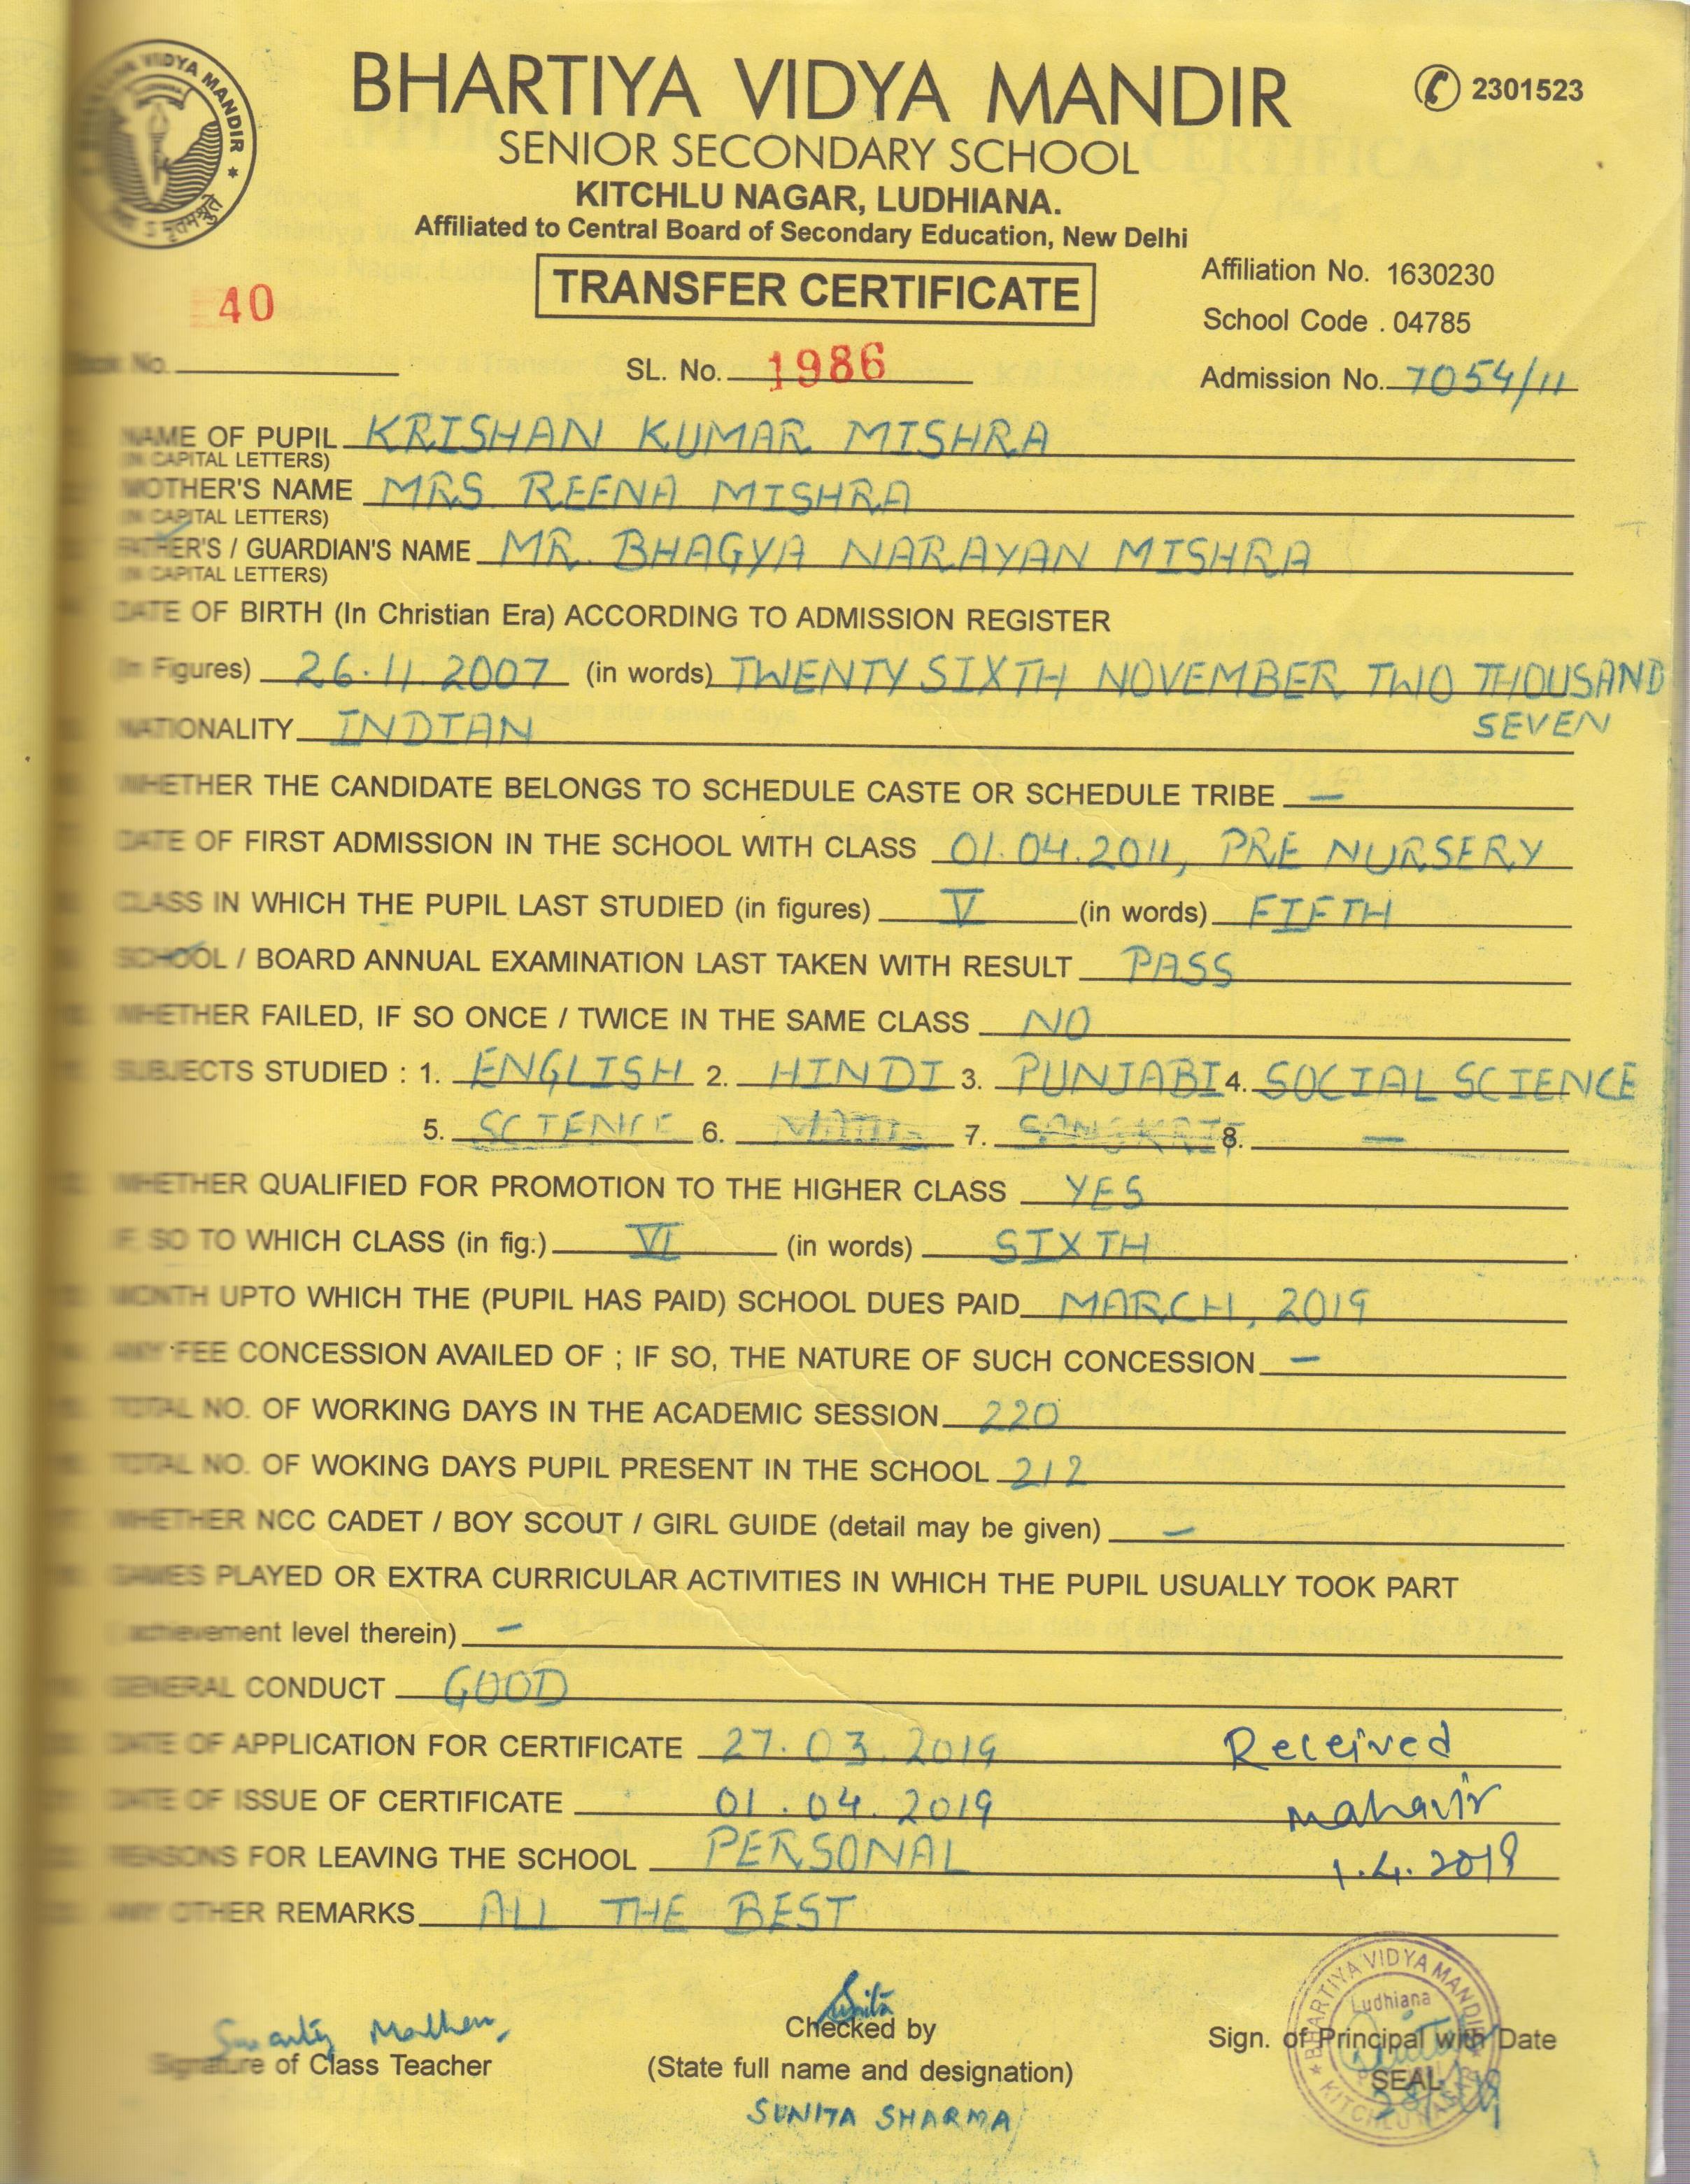 BHARTIYA VIDYA MANDIR
2301523
SENIOR SECONDARY SCHOOL
KITCHLU NAGAR, LUDHIANA.
Affiliated to Central Board of Secondary Education, New Delhi
TRANSFER CERTIFICATE
Affiliation No. 1630230
School Code . 04785
40
No. SL. No. 1986 Admission No. 7054/11
NAME OF PUPIL KRISHAN KUMAR MISHRA
(IN CAPITAL LETTERS)
MOTHER'S NAME MRS. REENA MISHRA
(IN CAPITAL LETTERS)
FATHER'S / GUARDIAN'S NAME MR. BHAGYA NARAYAN MISHRA
(IN CAPITAL LETTERS)
DATE OF BIRTH (In Christian Era) ACCORDING TO ADMISSION REGISTER
(In Figures) 26.11.2007 (in words) TWENTY SIXTH NOVEMBER TWO THOUSAND
SEVEN
NATIONALITY INDIAN
WHETHER THE CANDIDATE BELONGS TO SCHEDULE CASTE OR SCHEDULE TRIBE —
DATE OF FIRST ADMISSION IN THE SCHOOL WITH CLASS 01.04.2011, PRE NURSERY
CLASS IN WHICH THE PUPIL LAST STUDIED (in figures) V (in words) FIFTH
SCHOOL / BOARD ANNUAL EXAMINATION LAST TAKEN WITH RESULT PASS
WHETHER FAILED, IF SO ONCE / TWICE IN THE SAME CLASS NO
SUBJECTS STUDIED : 1. ENGLISH 2. HINDI 3. PUNJABI 4. SOCIAL SCIENCE
5. SCIENCE 6. 7. 8. —
WHETHER QUALIFIED FOR PROMOTION TO THE HIGHER CLASS YES
IF SO TO WHICH CLASS (in fig.) VI (in words) SIXTH
MONTH UPTO WHICH THE (PUPIL HAS PAID) SCHOOL DUES PAID MARCH, 2019
ANY FEE CONCESSION AVAILED OF ; IF SO, THE NATURE OF SUCH CONCESSION —
TOTAL NO. OF WORKING DAYS IN THE ACADEMIC SESSION 220
TOTAL NO. OF WOKING DAYS PUPIL PRESENT IN THE SCHOOL 212
WHETHER NCC CADET / BOY SCOUT / GIRL GUIDE (detail may be given) —
GAMES PLAYED OR EXTRA CURRICULAR ACTIVITIES IN WHICH THE PUPIL USUALLY TOOK PART
achievement level therein) —
GENERAL CONDUCT GOOD
DATE OF APPLICATION FOR CERTIFICATE 27.03.2019 Received
DATE OF ISSUE OF CERTIFICATE 01.04.2019 Mahavir
REASONS FOR LEAVING THE SCHOOL PERSONAL 1.4.2019
ANY OTHER REMARKS ALL THE BEST
Sunita
Checked by
Signature of Class Teacher
(State full name and designation)
SUNITA SHARMA
Sign. of Principal with Date
SEAL
BHARTIYA VIDYA MANDIR
Ludhiana
KITCHLU NAGAR